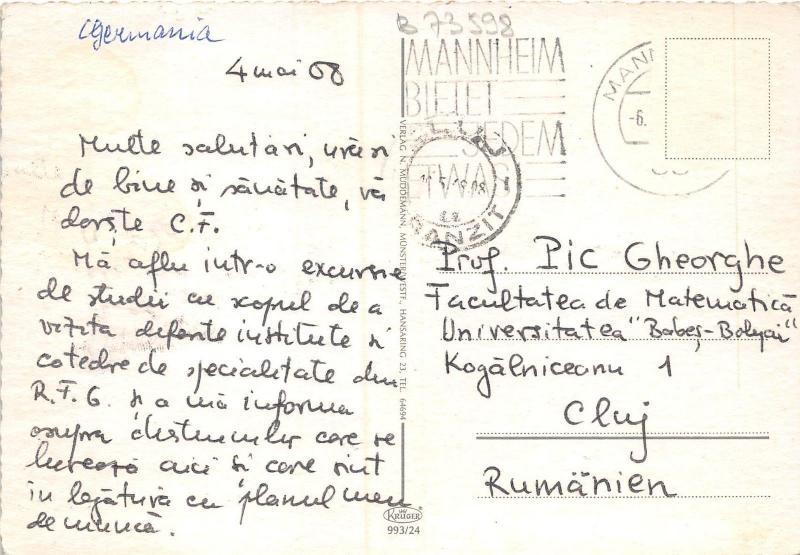 Germania
B 73598
4 mai 68
MANNHEIM
BIETET
JEDEM
ETWAS
MANN
-6.
CLUJ 1
TRANZIT
Multe salutări, urări
de bine și sănătate, vă
dorște C.F.
Mă aflu intr-o excursie
de studii cu scopul de a
vizita diferite institute și
catedre de specialitate din
R.F.G. și a mă informa
asupra care se
lucrează aici și care sînt
in legătură cu planul meu
de muncă.
Prof. Pic Gheorghe
Facultatea de Matematică
Universitatea "Babeș-Bolyai"
Kogălniceanu 1
Cluj
Rumänien
VERLAG N. MUDDEMANN, MÜNSTER/WESTF., HANSARING 23, TEL. 64694
KRÜGER
993/24